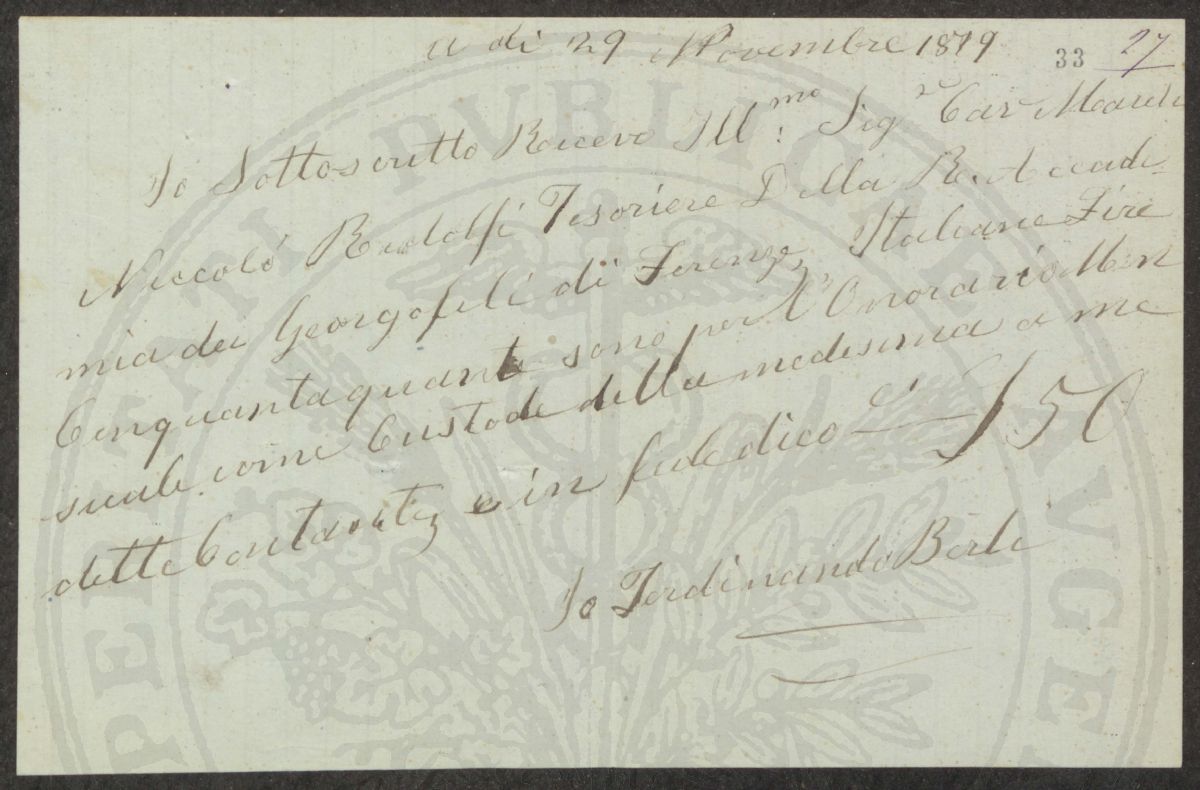 a di 29 Novembre 1879
33 27
Io Sottoscritto Ricevo Ill:mo Sige Cav March
Niccoló Ridolfi Tesoriere Della R. Accade
mia dei Georgofili di Firenze, Italiane Lire
Cinquanta quante sono per l'Onorario Men
suale come Custode della medesima a me
dette Contante, e in fede dico L 50
Io Ferdinando Berti
PERITATI PVBLICAE AVGE